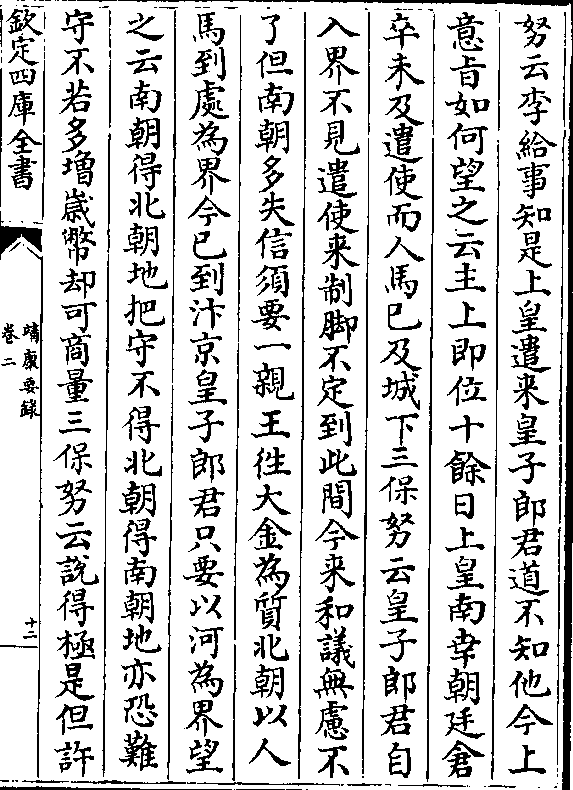 努云李給事知是上皇遣来皇子郎君道不知他今上
意㫖如何望之云主上即位十餘日上皇南幸朝廷倉
卒未及遣使而人馬已及城下三保努云皇子郎君自
入界不見遣使来制脚不定到此間今来和議無慮不
了但南朝多失信須要一親王徃大金為質北朝以人
馬到處為界今已到汴京皇子郎君只要以河為界望
之云南朝得北朝地把守不得北朝得南朝地亦恐難
守不若多增嵗幣却可商量三保努云說得極是但許
欽定四庫全書
靖康要錄
卷二
十二